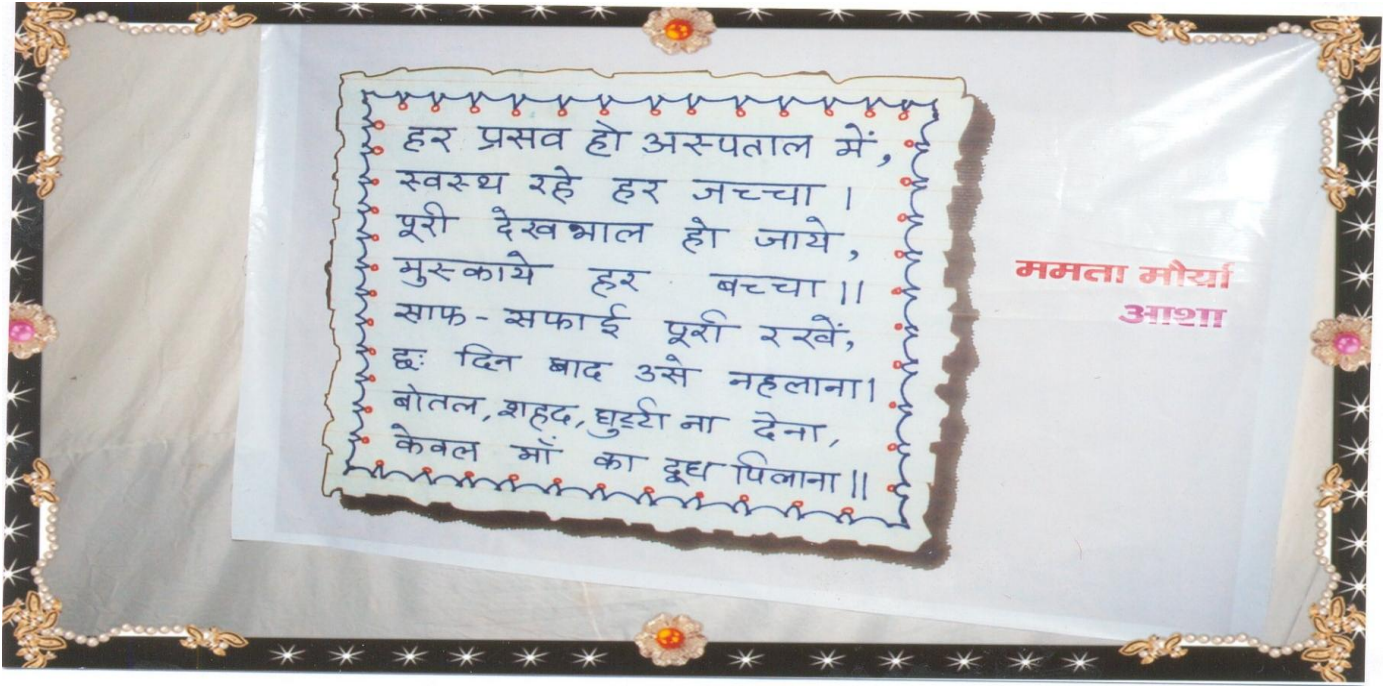 हर प्रसव हो अस्पताल में,
स्वस्थ रहे हर जच्चा ।
पूरी देखभाल हो जाये,
मुस्काये हर बच्चा ॥
साफ-सफाई पूरी रखें,
छः दिन बाद उसे नहलाना।
बोतल, शहद, घुट्टी ना देना,
केवल माँ का दूध पिलाना ॥
ममता मौर्या
आशा